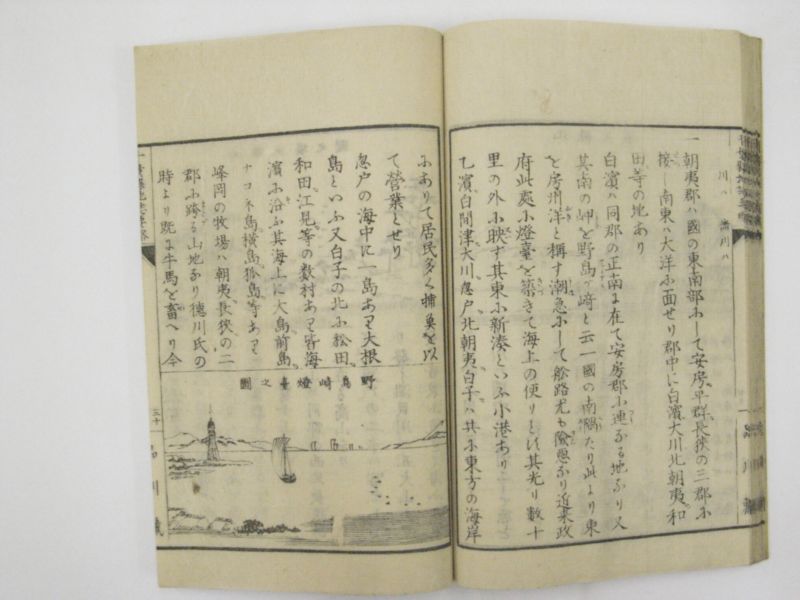 一朝夷郡ハ國の東南部ふして安房平群長狭の三郡ふ
接し南東ハ大洋ふ面せり郡中に白濱大川北朝夷和
田等の地あり
白濱ハ同郡の正南に在て安房郡小連なる地なり又
其南の岬を野島ヶ﨑と云一國の南隅たり此より東
を房州洋と稱す潮急ふして舩路尤も險惡なり近来政
府此處小燈臺を築きて海上の便りとす其光り數十
里の外小映ず其東小新湊といふ小港あり
乙濱白間津大川忽戸北朝夷白子ハ共小東方の海岸
ふありて居民多く捕魚を以
て營業とせり
忽戸の海中に一島あり大根
島といふ又白子の北ふ松田
和田江見等の数村あり皆海
濱ふ沿ふ其海上に大島前島
ナコネ島横島狐島等あり
峰岡の牧場ハ朝夷長狭の二
郡ふ跨る山地なり德川氏の
時より既に牛馬を畜へり今
野島崎燈臺之圖
三十